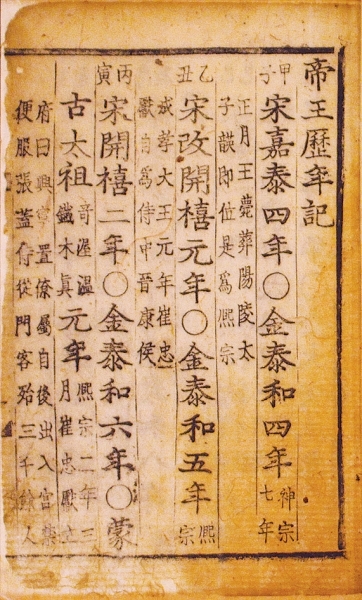 帝王歷年記
甲子
宋嘉泰四年〇金泰和四年
神宗
七年
正月王薨葬陽陵太
子韺即位是爲熙宗
乙丑
宋改開禧元年〇金泰和五年
熙宗
成孝大王元年崔忠
獻自爲侍中晉康侯
丙寅
宋開禧二年〇金泰和六年〇蒙
古太祖
奇渥溫
鐵木眞
元年
熙宗二年三
月崔忠獻立
府曰興寧置僚屬自後出入宮禁
便服張蓋侍從門客殆三千餘人